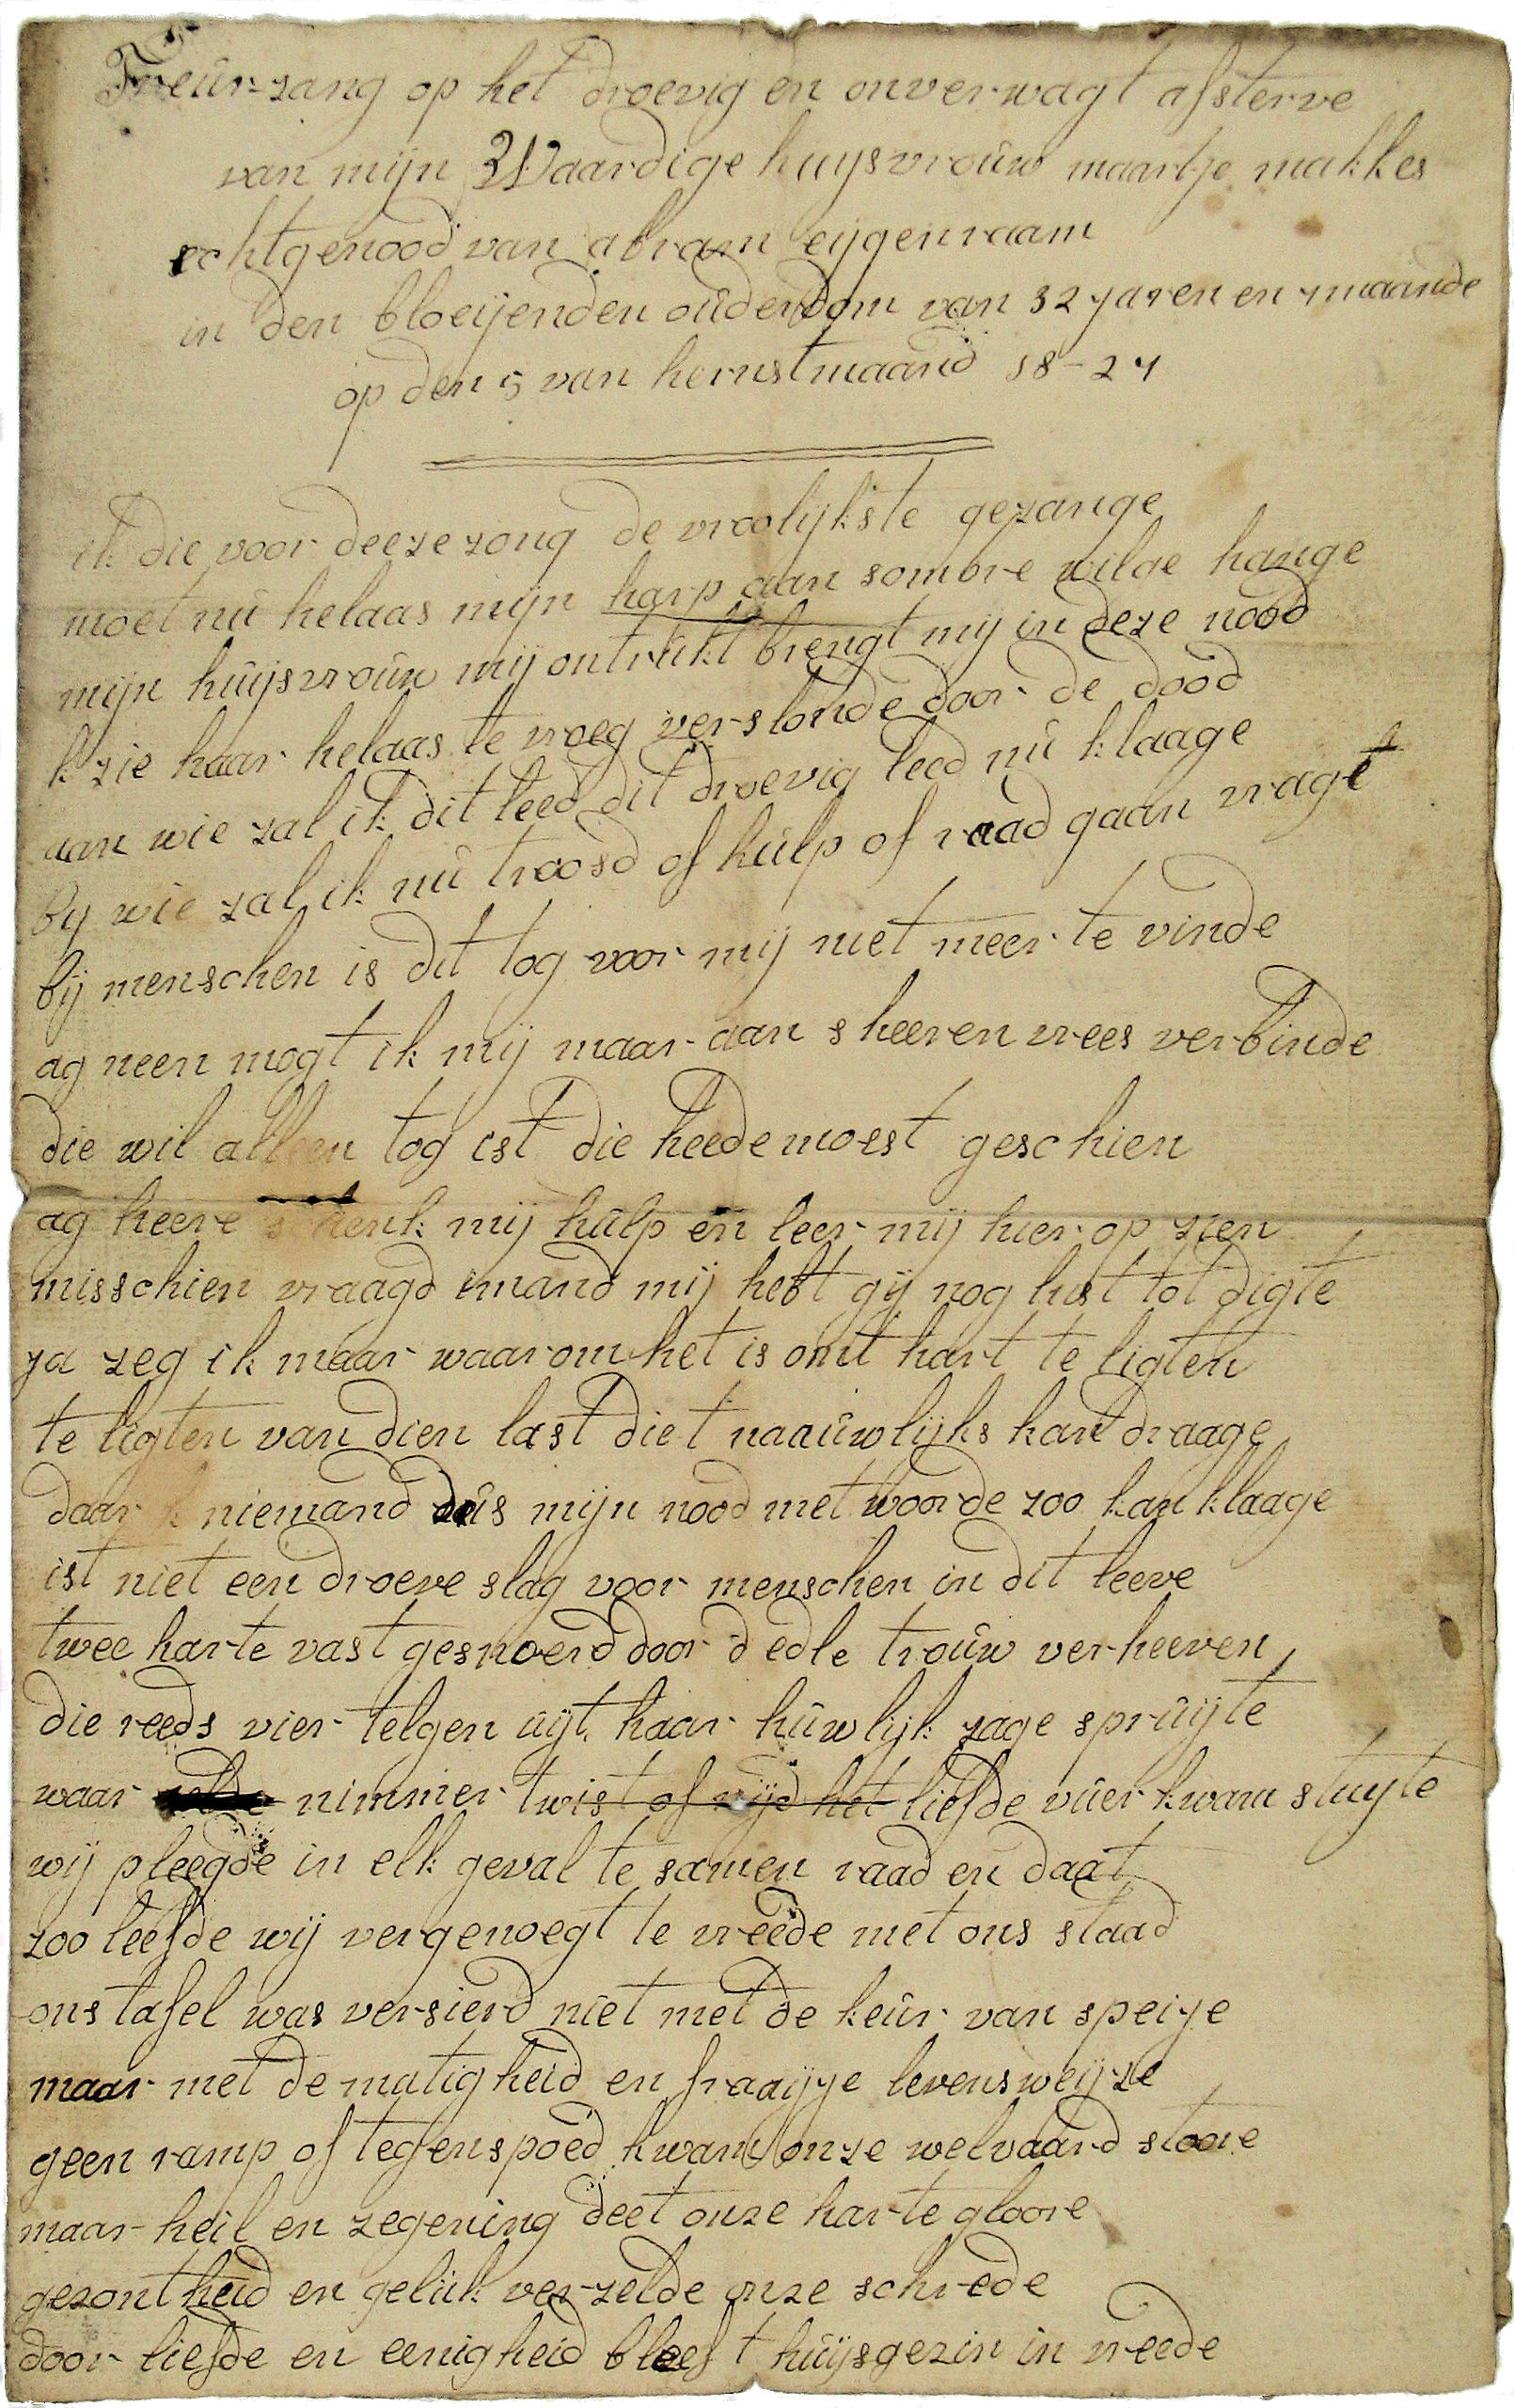 Treur-zang op het droevig en onverwagt afsterve
van mijn Waardige huysvrouw maartje makkes
echtgenood van abram eijgenraam
in den bloeijenden ouderdom van 32 jaren en maande
op den 5 van herfstmaand 18-21
ik die voor deeze zong de vroolijkste gezange
moet nu helaas mijn harp aan sombre wilge hange
mijn huijsvrouw mij ontrukt brengt mij in deze nood
k zie haar helaas te vroeg verslonde door de dood
aan wie zal ik dit leed dit droevig leed nu klaage
by wie zal ik nu troosd of hulp of raad gaan vrage
bij menschen is dit tog voor mij niet meer te vinde
ag neen mogt ik mij maar aan s heeren vrees verbinde
die wil alleen tog ist die heede moest geschien
ag heere schenk mij hulp en leer mij hier op zien
misschien vraagd imand mij hebt gij nog lust tot digte
ja zeg ik maar waarom het is omt hart te ligten
te ligten van dien last die t naauwlijks kan draage
daar k niemand dus mijn nood met woorde zoo kan klaage
ist niet een droeve slag voor menschen in dit leeve
twee harte vast gesnoerd door d edle trouw verheeven
die reeds vier telgen uijt haar huwlijk zage spruijte
waar nimmer twist of nijd het liefde vuer kwam stuyte
wij pleegde in elk geval te samen raad en daat
zoo leefde wij vergenoegt te vreede met ons staad
ons tafel was versierd niet met de keur van speize
maar met de matigheid en fraaije levensweijze
geen ramp of tegenspoed kwam onze welvaard stoore
maar heil en zegening deet onze harte gloore
gezontheid en geluk verzelde onze schrede
door liefde en eenigheid bleef t huijsgezin in vreede